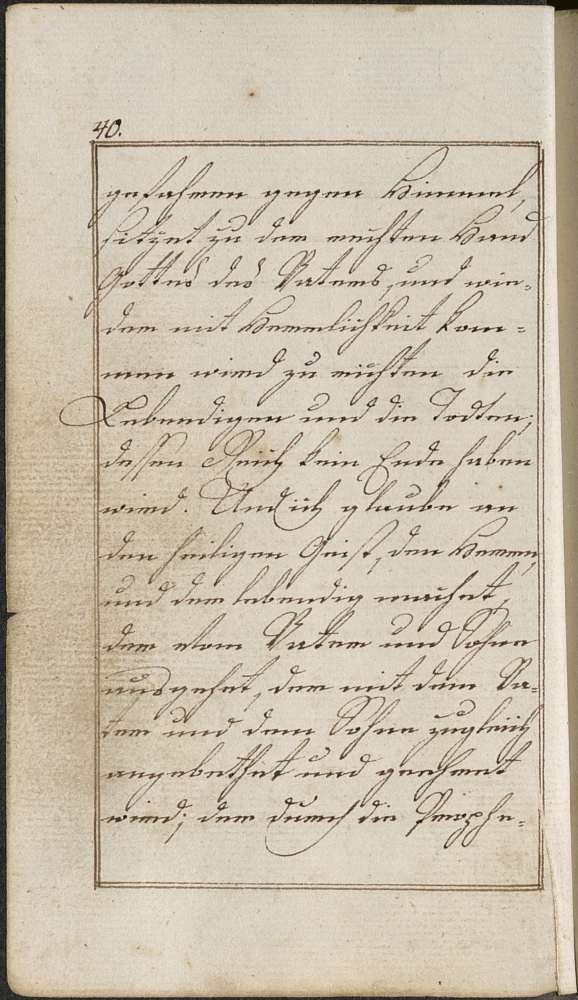 40.
gefahren gegen Himmel,
sitzet zu der rechten Hand
Gottes des Vaters, und wie-
der mit Herrlichkeit kom-
men wird zu richten die
Lebendigen und die Todten;
dessen Reich kein Ende haben
wird. Und ich glaube an
den heiligen Geist, den Herren,
und der lebendig machet,
der vom Vater und Sohne
ausgehet, der mit dem Va-
ter und dem Sohne zugleich
angebethet und geehret
wird; der durch die Prophe-